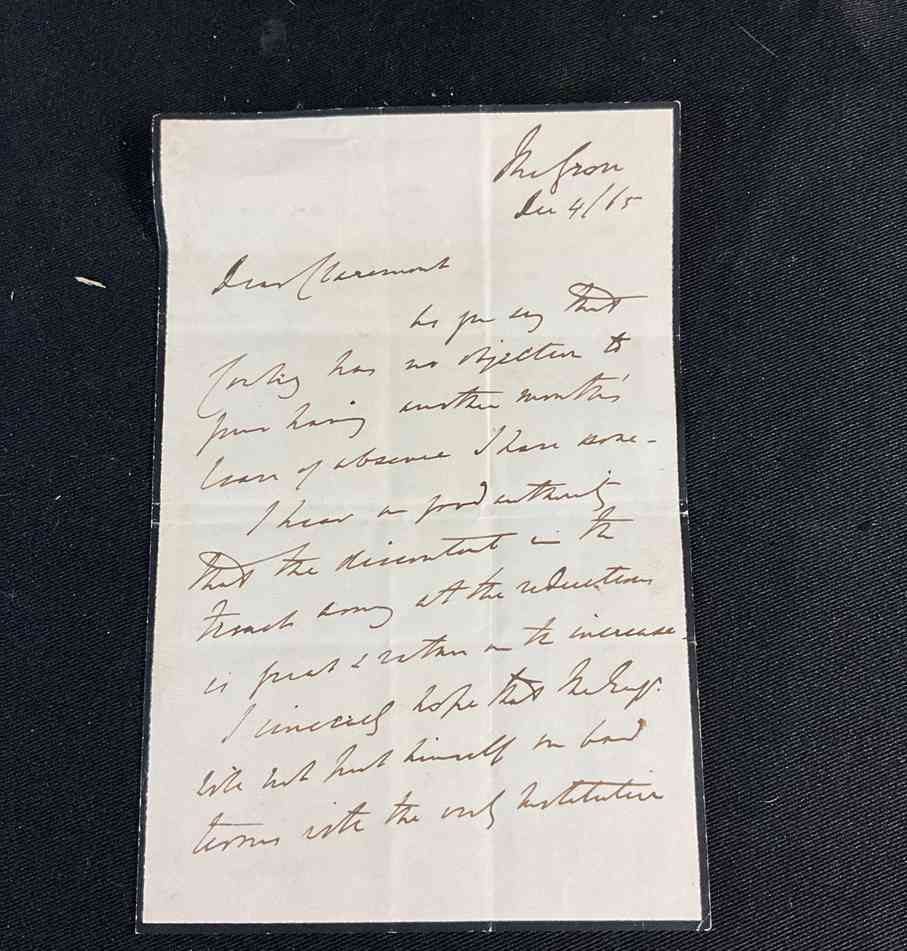 The Grove
Dec 4/65
Dear Claremont
As you say that
Cowley has no objection to
your having another month's
leave of absence I have none -
I hear on good authority
that the discontent in the
French army at the reductions
is great & rather on the increase.
I sincerely hope that the Emp.
will not put himself on bad
terms with the only Institution